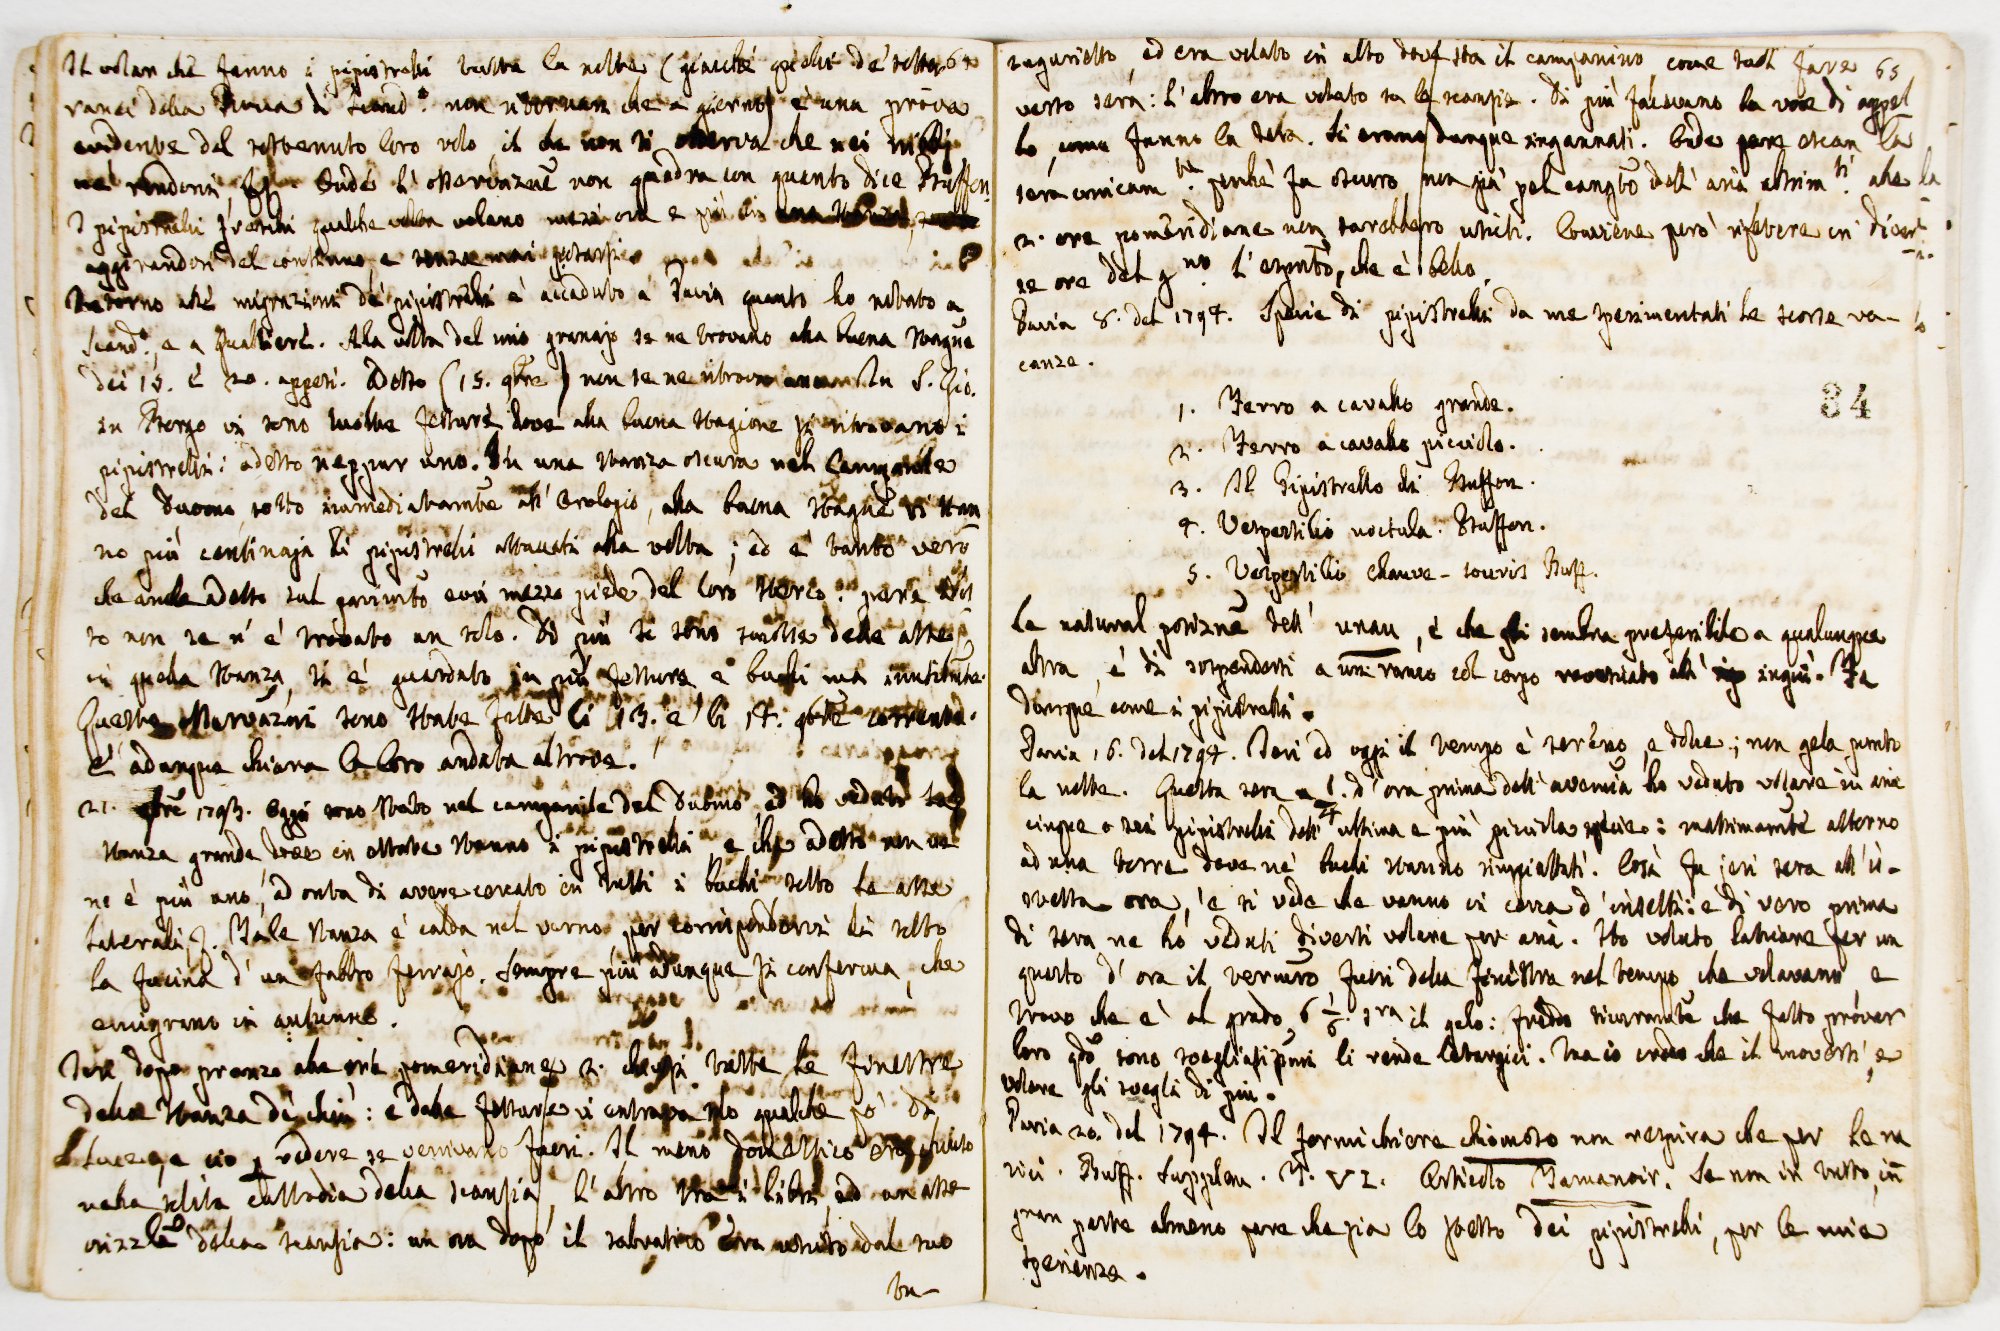 Il volar che fanno i pipistrelli tutta la notte (giacché quelli de' sotter 62
ranei della Rocca di Scand.o non ritornan che a giorno) è una prova
evidente del sostenuto loro volo il che non si osserva che nei
né rondoni, . Onde l'osservazne non quadra con quanto dice Buffon.
I pipistrelli freschi qualche volta volano mezz'ora e più
aggirandosi del continuo, e senza mai posarsi.
Intorno alle migrazioni de' pipistrelli è accaduto a Pavia quanto ho notato a
Scand.o, e a Gualtieri. Alla volta del mio granajo se ne trovano alla buona stagne
dei 15. e 20. appesi. Adesso (15. 9bre) non se ne ritrova In S. Gio.
in Borgo vi sono molte fessure dove alla buona stagione si ritrovano i
pipistrelli: adesso neppur uno. In una stanza oscura nel Campanile
del Duomo, sotto immediatamte all' Orologio, alla buona stagne vi stan
no più centinaja di pipistrelli attaccati alla volta; ed è tanto vero
che anche adesso sul pavimto evvi mezzo piede del loro sterco: però ades
so non se n' è trovato un solo. Di più si sono smosse delle asse
in quella stanza, si è guardato in più fessure e buchi ma inutilmte.
Queste osservazioni sono state fatte li 13. e li 14. 9bre corrente.
È adunque chiara la loro andata altrove.
21. 9bre 1793. Oggi sono stato nel campanile del Duomo, ed ho veduto la
stanza grande dove in estate stanno i pipistrelli e che adesso non ve
ne è più uno, ad onta di avere cercato in tutti i buchi sotto le asse
laterali. Tale stanza è calda nel verno per corrispondervi di sotto
la fucina d' un fabbro ferrajo. Sempre più adunque si conferma, che
emigrano in autunno.
Ieri dopo pranzo alle ore pomeridiane 2. chiusi tutte le finestre
della stanza : e dalle fessure vi entrava solo qualche pò di
luce, e ciò p vedere se venivano fuori. Il meno domestico era
nella solita custodia della scansia, l'altro tra i libri, ed un asse
orizzle della scansia: un ora dopo il salvatico era uscito dal suo
bu-
bugigatto, ed era volato in alto dove sta il campanino come suol fare 63
verso sera: l' altro era volato su le scansie. Di più facevano la voce di appel
lo, come fanno la sera. Si erano dunque ingannati. Onde pare escan la
sera unicam.te perché fa oscuro non già pel cangto dell' aria altrim.ti alle
2. ore pomeridiane non sarebbero usciti. Conviene però ripetere in diver
se ore del gno l' esperto, che è bello.
Pavia 8. del 1794. Specie di pipistrelli da me sperimentati le scorse va-
canze.
34
1. Ferro a cavallo grande.
2. Ferro a cavallo picciolo.
3. Il Pipistrello di Buffon.
4. Vespertilio noctula. Buffon.
5. Vespertilio chauve-souris Buff.
La natural posizne dell' unau, è che gli sembra preferibile a qualunque
altra, è di sospendersi a un ramo col corpo rovesciato all' ingiù. Fa
dunque come i pipistrelli.
Pavia 16. del 1794. Ieri ed oggi il tempo è sereno, e dolce; non gela punto
la notte. Questa sera a 1/4. d' ora prima dell' avemia ho veduto volare in aria
cinque o sei pipistrelli dell' ultima e più picciola specie: massimamte attorno
ad una torre dove ne' buchi stanno rimpiattati. Così fu jeri sera all' i-
stessa ora, e si vede che vanno in cerca d' insetti: e di vero prima
di sera ne ho veduti diversi volare per aria. Ho voluto lasciare per un
quarto d' ora il termtro fuori della finestra nel tempo che volavano, e
trovo che è al grado 6 1/6. sra il gelo: freddo sicuramte che fatto provar
loro qdo sono svegliatissimi li rende letargici. Ma io credo che il moversi, e
volare gli svegli di più.
Pavia 20. del 1794. Il formichiere chiomoso non respira che per le na
rici. Buff. Supplem. T. VI. Articolo Tamanoir. Se non in tutto, in
gran parte almeno pare che sia lo stesso dei pipistrelli, per le mie
sperienze.